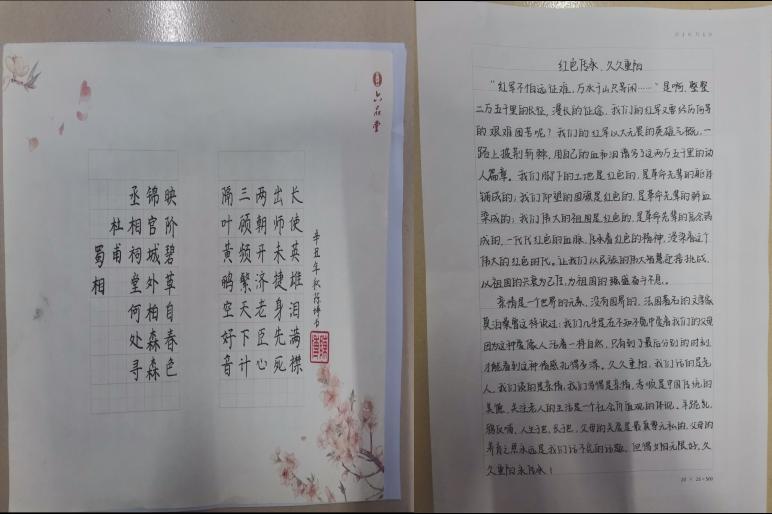 六品堂
蜀相
杜甫
丞相祠堂何处寻
锦官城外柏森森
映阶碧草自春色
隔叶黄鹂空好音
三顾频繁天下计
两朝开济老臣心
出师未捷身先死
长使英雄泪满襟
辛丑年秋 博书
红色传承、久久重阳
“红军不怕远征难,万水千山只等闲……”是啊,整整
二万五千里的长征,漫长的征途,我们的红军又曾经历何等
的艰难困苦呢?我们的红军以大无畏的英雄气概,一
路上披荆斩棘,用自己的血和泪谱写了这两万五千里的动
人篇章。我们脚下的土地是红色的,是革命先辈的躯身
铺成的;我们仰望的国旗是红色的,是革命先辈的鲜血
染成的;我们伟大的祖国是红色的,是革命先辈的信念铸
成的,一代代红色的血脉,传承着红色的精神,浸染着这个
伟大的红色时代。让我们以民族的伟大智慧迎接挑战,
以祖国的兴衰为己任,为祖国的强盛奋斗不息。
亲情是一个世界的元素,没有国界的,法国著名的文学家
莫泊桑曾这样说过:我们几乎是在不知不觉中爱着我们的父母
因为这种爱像人活着一样自然,只有到了最后分别的时刻
才能看到这种情感扎得多深。久久重阳,我们话的是老
人,我们谈的是亲情,我们弯慢是亲情,孝顺是中国传统的
美德,关注老人的生活是一个社会价值观的体现。羊跪乳,
鸦反哺,人生一世,长一世,父母的关爱是最真挚无私的,父母的
养育之恩永远是我们话不尽的话题。但得夕阳无限好,久
久重阳永传承!
20 × 25 = 500